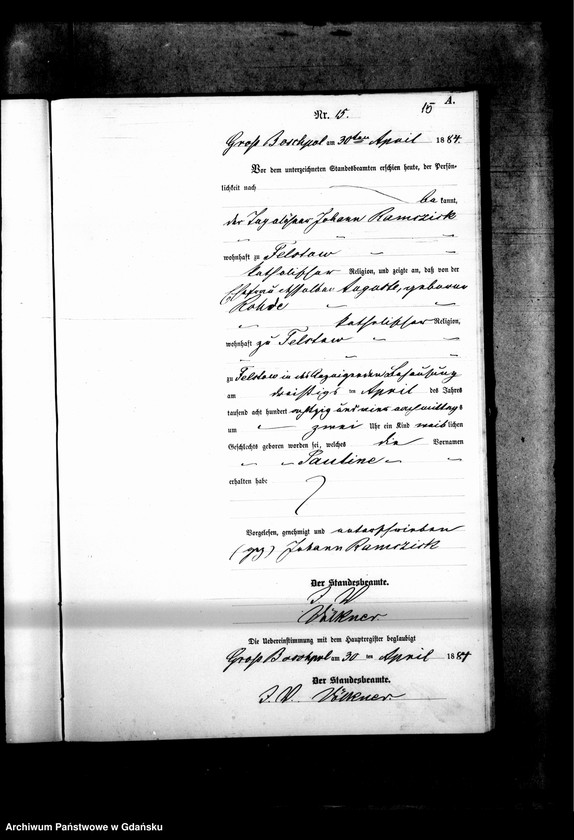 A.
15
Nr. 15.
Groß Boschpol am 30ten April 1884.
Vor dem unterzeichneten Standesbeamten erschien heute, der Persön-
lichkeit nach
bekannt,
der Tagelöhner Johann Ramczick
wohnhaft zu Telstow
katholischer Religion, und zeigte an, daß von der
Ehefrau desselben Auguste, geborenen
Rohde
katholischer Religion,
wohnhaft zu Telstow
zu Telstow in der Behausung
am dreißigs ten April des Jahres
tausend acht hundert achtzig und vier mittags
um zwei Uhr ein Kind weiblichen
Geschlechts geboren worden sei, welches die Vornamen
Pauline
erhalten habe
Vorgelesen, genehmigt und unterschrieben
(gez) Johann Ramczick
Der Standesbeamte.
J. V.
Völkner.
Die Uebereinstimmung mit dem Hauptregister beglaubigt
Groß Boschpol am 30 ten April 1884
Der Standesbeamte.
J. V. Völkner.
Archiwum Państwowe w Gdańsku